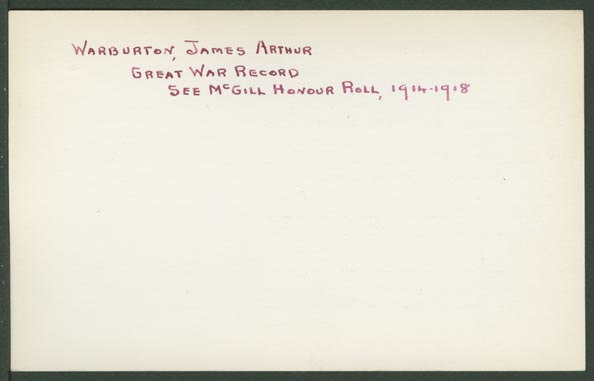 Warburton, James Arthur
Great War Record
See McGill Honour Roll, 1914-1918